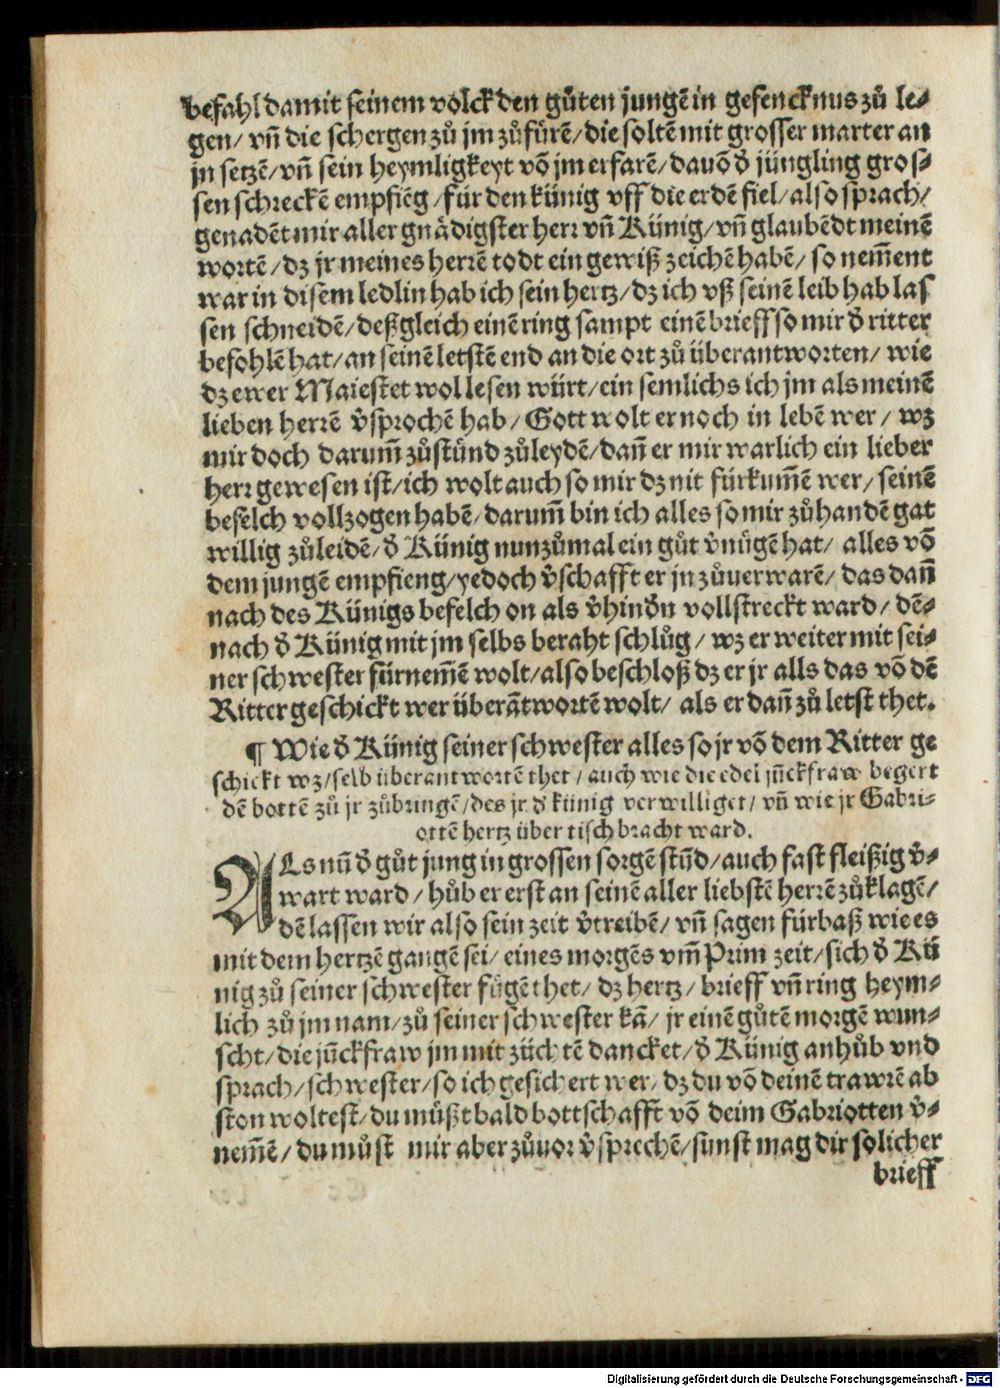 befahl damit seinem volck den gůten jungẽ in gefencknus zů le⸗
gen/ vñ die schergen zů jm zůfürẽ/ die soltẽ mit grosser marter an
jn setzẽ/ vñ sein heymligkeyt võ jm erfarẽ/ dauõ d̓ jüngling gros⸗
sen schreckẽ empfiẽg/ für den künig vff die erdẽ fiel/ also sprach/
genadẽt mir aller gnädigster herr vñ Künig/ vñ glaubẽdt meinẽ
wortẽ/ dz jr meines herrẽ todt ein gewiß zeichẽ habẽ/ so nem̃ent
war in disem ledlin hab ich sein hertz/ dz ich vß seinẽ leib hab las
sen schneidẽ/ deßgleich einẽ ring sampt einẽ brieff so mir d̓ ritter
befohlẽ hat/ an seinẽ letstẽ end an die ort zů überantworten/ wie
dz ewer Maiestet wol lesen würt/ ein semlichs ich jm als meinẽ
lieben herrẽ v̓sprochẽ hab/ Gott wolt er noch in lebẽ wer/ wz
mir doch darum̃ zůstünd zůleydẽ/ dañ er mir warlich ein lieber
herr gewesen ist/ ich wolt auch so mir dz nit fürkum̃ẽ wer/ seinẽ
befelch vollzogen habẽ/ darum̃ bin ich alles so mir zůhandẽ gat
willig zůleidẽ/ d̓ Künig nunzůmal ein gůt v̓nügẽ hat/ alles võ
dem jungẽ empfieng/ yedoch v̓schafft er jn zůuerwarẽ/ das dañ
nach des Künigs befelch on als v̓hind̓n vollstreckt ward/ dẽ⸗
nach d̓ Künig mit jm selbs beraht schlůg/ wz er weiter mit sei⸗
ner schwester fürnem̃ẽ wolt/ also beschloß dz er jr alls das võ dẽ
Ritter geschickt wer überãtwortẽ wolt/ als er dañ zů letst thet.
¶ Wie d̓ Künig seiner schwester alles so jr võ dem Ritter ge
schickt wz/ selb überantwortẽ thet/ auch wie die edel jũckfraw begert
dẽ bottẽ zů jr zůbringẽ/ des jr d̓ künig verwilliget/ vñ wie jr Gabri⸗
ottẽ hertz über tisch bracht ward.
ALs nũ d̓ gůt jung in grossen sorgẽ stũd/ auch fast fleißig v̓⸗
wart ward/ hůb er erst an seinẽ aller liebstẽ herrẽ zůklagẽ/
dẽ lassen wir also sein zeit v̓treibẽ/ vñ sagen fürbaß wie es
mit dem hertzẽ gangẽ sei/ eines morgẽs vm̃ Prim zeit/ sich d̓ Kü
nig zů seiner schwester fügẽ thet/ dz hertz/ brieff vñ ring heym⸗
lich zů jm nam/ zů seiner schwester kã/ jr einẽ gůtẽ morgẽ wun⸗
scht/ die jũckfraw jm mit züchtẽ dancket/ d̓ Künig anhůb vnd
sprach/ schwester/ so ich gesichert wer/ dz du võ deinẽ trawrẽ ab
ston woltest/ du müßt bald bottschafft võ deim Gabriotten v̓⸗
nem̃ẽ/ du můst mir aber zůuor v̓sprechẽ/ sunst mag dir solicher
brieff
Digitalisierung gefördert durch die Deutsche Forschungsgemeinschaft - DFG